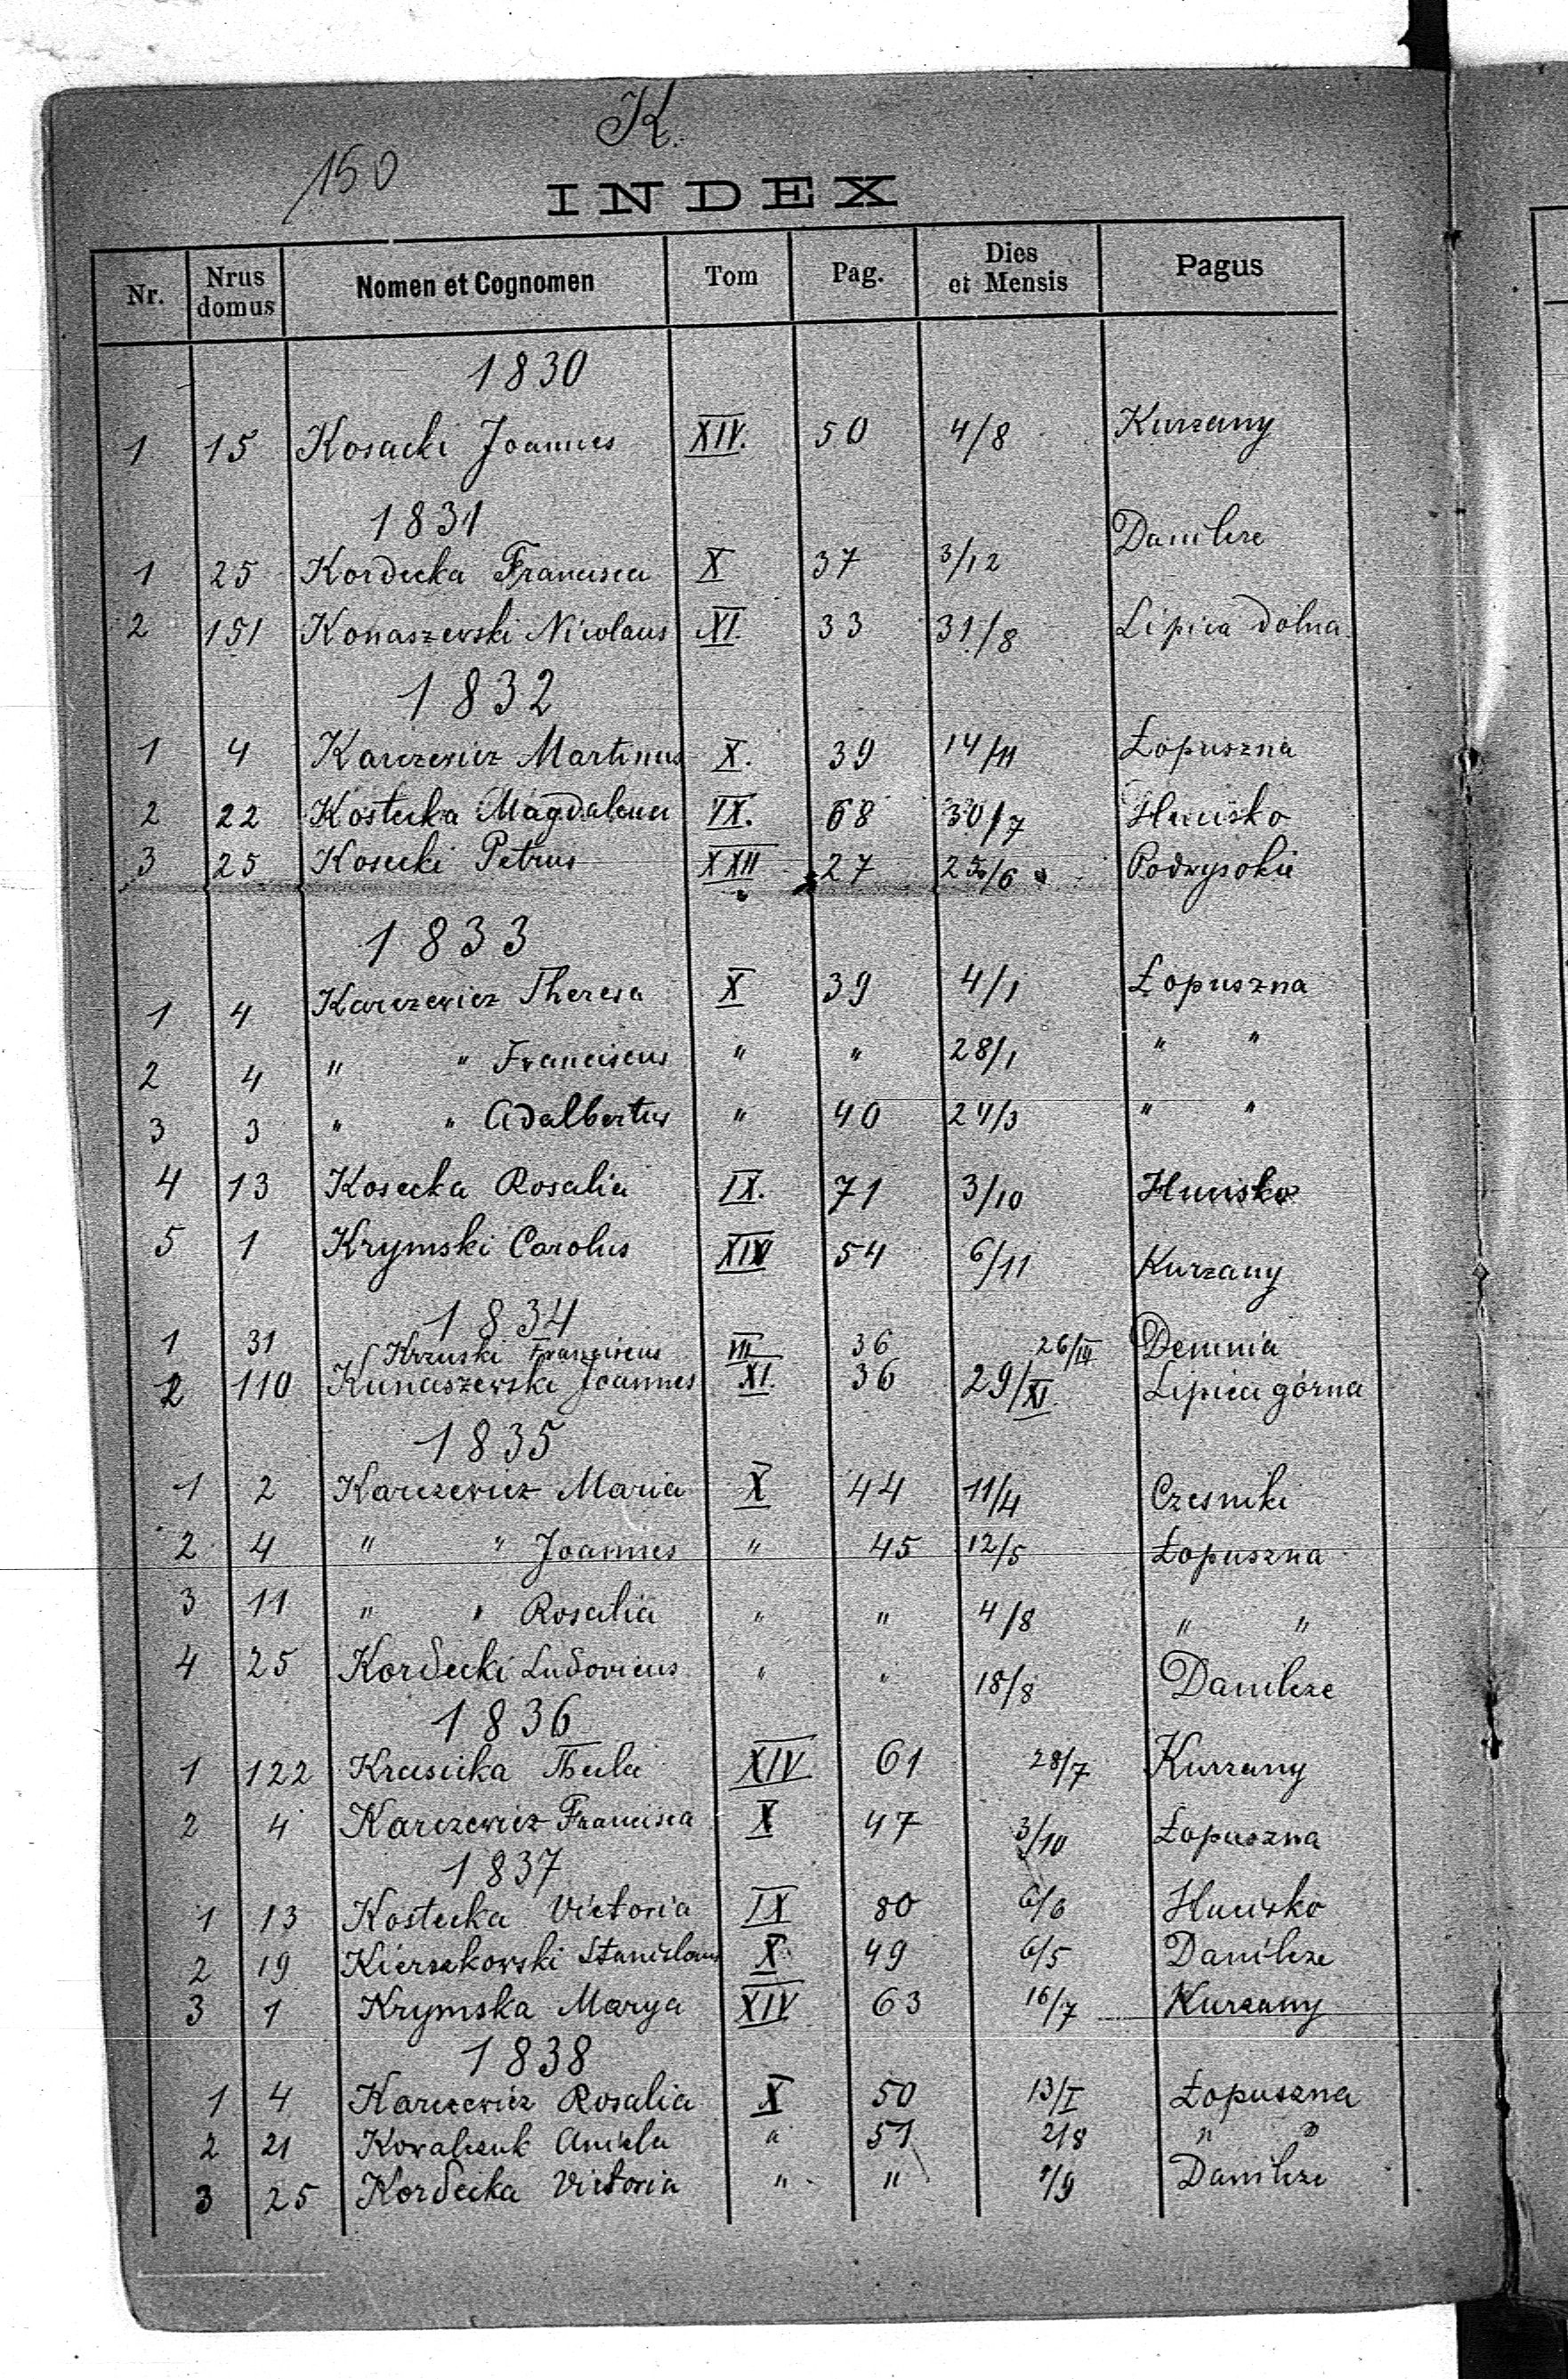 K.
150
INDEX
Nr. Nrus domus Nomen et Cognomen Tom Pag. Dies et Mensis Pagus
1830
1 15 Kosacki Joannes XIV. 50 4/8 Kurzany
1831
1 25 Kordecka Francisca X 37 3/12 Danilcze
2 151 Konaszewski Nicolaus XI. 33 31/8 Lipica dolna
1832
1 4 Karczewicz Martinus X. 39 14/11 Łopuszna
2 22 Kostecka Magdalena IX. 68 30/7 Hucisko
3 25 Kosecki Petrus XXII 27 /6 Podwysokie
1833
1 4 Karczewicz Theresa X 39 4/1 Łopuszna
2 4 " " Franciscus " " 28/1 " "
3 3 " " Adalbertus " 40 24/3 " "
4 13 Kosecka Rosalia IX. 71 3/10 Hucisko
5 1 Krymski Carolus XIV 54 6/11 Kurzany
1834
1 31 Krzuski Franciscus VII 36 26/III Demnia
2 110 Kunaszewski Joannes XI. 36 29/XI. Lipica górna
1835
1 2 Karczewicz Maria X 44 11/4 Czesniki
2 4 " " Joannes " 45 12/5 Łopuszna
3 11 " " Rosalia " " 4/8 " "
4 25 Kordecki Ludovicus " " 18/8 Danilcze
1836
1 122 Krasicka Thecla XIV 61 28/7 Kurzany
2 4 Karczewicz Francisca X 47 3/10 Łopuszna
1837
1 13 Kostecka Victoria IX 80 6/6 Hucisko
2 19 Kierzkowski Stanislaus X. 49 6/5 Danilcze
3 1 Krymska Marya XIV 63 16/7 Kurzany
1838
1 4 Karczewicz Rosalia X 50 13/I Łopuszna
2 21 Kowalczuk Aniela " 51 2/8 " "
3 25 Kordecka Victoria " " /9 Danilcze